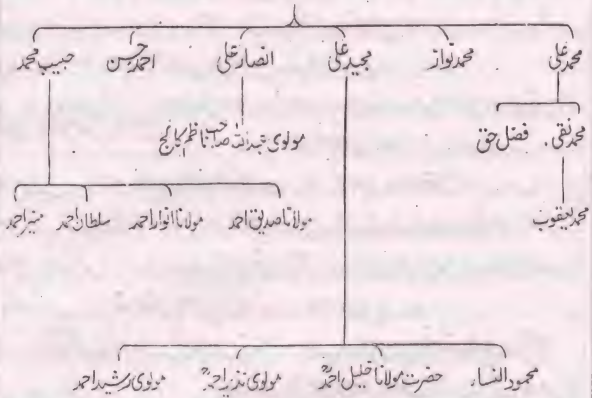 محمد علی محمد نواز مجید علی انصار علی احمد حسن حبیب محمد
مولوی عبداللہ صاحب ناظم کالج
محمد نقی۔ فضل حق
مولانا صدیق احمد مولانا انوار احمد سلطان احمد منیر احمد
محمد یعقوب
محمود النساء حضرت مولانا خلیل احمدؒ مولوی نذیر احمدؒ مولوی رشید احمد